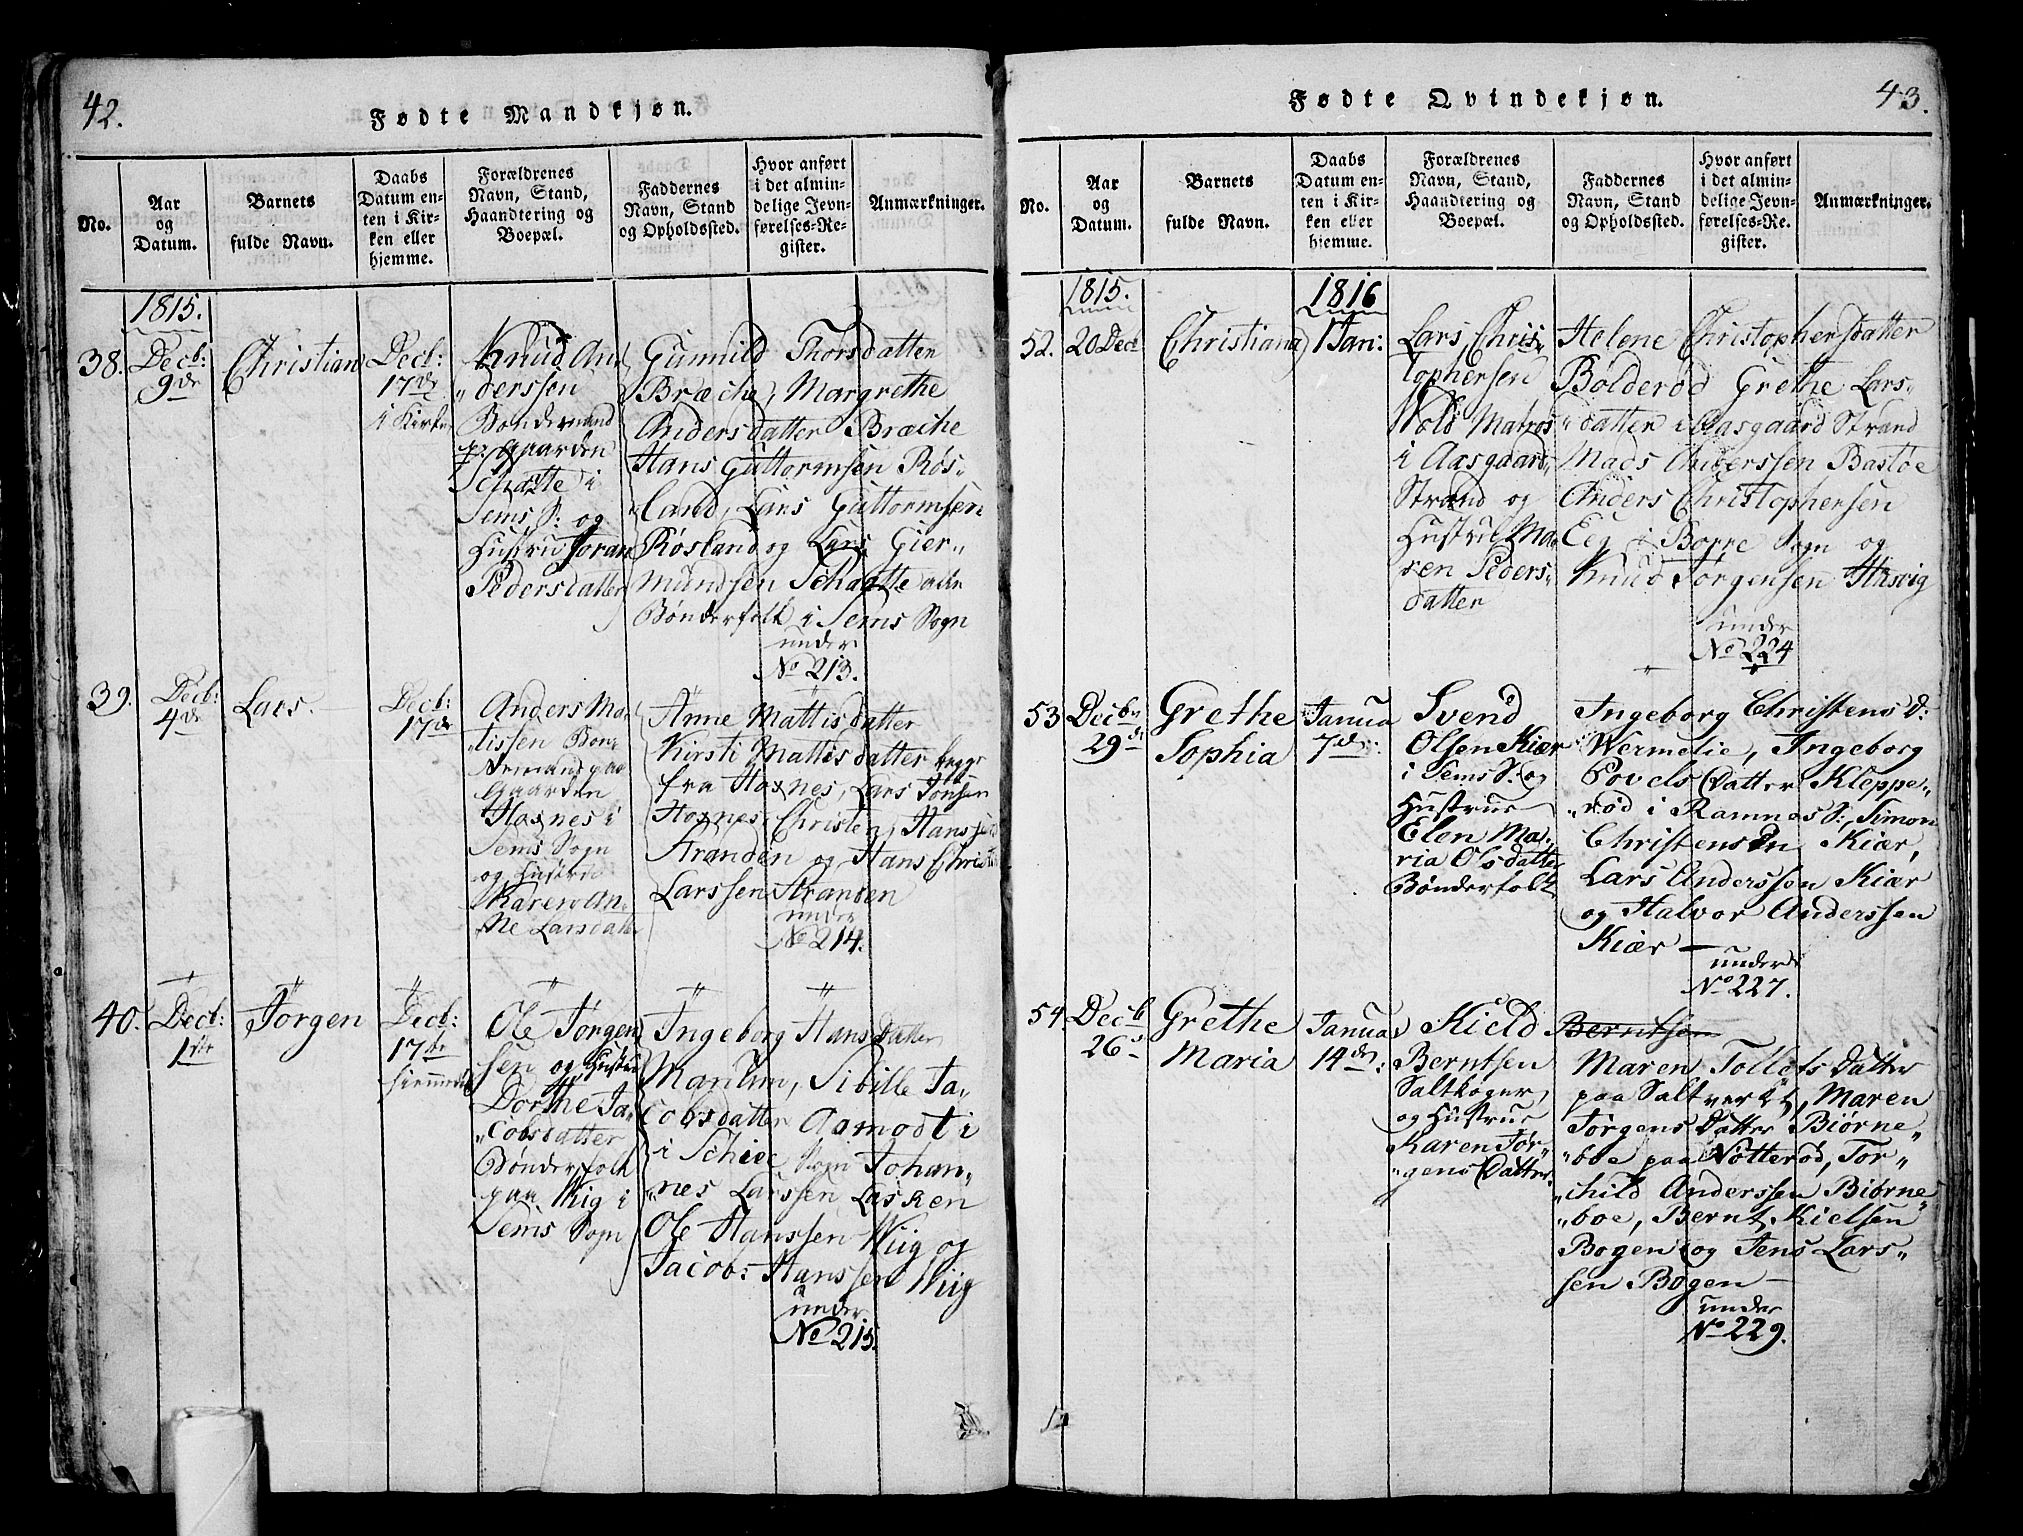 42.
Fødte Mandkjøn.
No.
Aar
og
Datum.
Barnets
fulde Navn.
Daabs
Datum en-
ten i Kir-
ken eller
hjemme.
Forældrenes
Navn, Stand,
Haandtering og
Boepæl.
Faddernes
Navn, Stand
og Opholdssted.
Hvor anført
i det almin-
delige Jevn-
førelses-Re-
gister.
Anmærkninger.
1815.
38.
Decb:
9de
Christian
Decb:
17de
i Kirke
Knud An
„derssen
Bondemand
paa Gaarden
Schatte i
Sems S: og
Hustru Joran
Pedersdatter
Gunnild Thorsdatter
Bræche, Margrethe
Andersdatter Bræche
Hans Guttormsen Røs-
land, Lars Guttormsen
Røsland og Lars Gier-
mundsen Schaatte alle
Bønderfolk i Sems Sogn
under
No 213.
39.
Decb:
4de
Lars.
Decb:
17de
Anders Ma
tissen Bon-
demand paa
Gaarden
Haxnes i
Sems Sogn
og Hustru
Karen An-
ne Larsdatter
Anne Mattisdatter
Kirsti Mattisdatter begge
fra Haxnes, Lars Jonsen
Haxnes, Christen Hanssen
Stranden og Hans Christi
Larssen Stranden
under
No 214.
40.
Decb:
1ste
Jørgen
Decb:
17de
hiemme
Ole Jørgen
sen og Hustru
Dorthe Ja-
„cobsdatter
Bønderfolk
paa Wiig i
Sems Sogn
Ingeborg Hansdatter
Manum, Sibille Ja-
cobsdatter Aamodt i
i Schiee Sogn Johan-
„nes Larssen Lasken
Ole Hanssen Wiig og
Jacob: Hanssen Wiig
under
No 215.
43.
Fødte Qvindekjøn.
No.
Aar
og
Datum.
Barnets
fulde Navn.
Daabs
Datum en-
ten i Kir-
ken eller
hjemme.
Forældrenes
Navn, Stand,
Haandtering og
Boepæl.
Faddernes
Navn, Stand
og Opholdssted.
Hvor anført
i det almin-
delige Jevn-
førelses-Re-
gister.
Anmærkninger.
1815.
1816
52.
20 Dec
Christiana
1 Jan:
Lars Chris-
tophersen
Wold Matros
i Aasgaard-
Strand og
Hustrue Ma-
ren Peders-
datter
Helene Christophersdatter
Bolderød Grethe Lars-
„datter i Aasgaard Strand
Mads Anderssen Bastøe
Anders Christophersen
Eeg i Borre Sogn og
Knud Jørgensen Hasvig
under
No 224
53
Decb
29de
Grethe
Sophia
Janua
7de:
Svend
Olsen Kiær
i Sems S. og
Hustrue
Elen Ma-
ria Olsdatter
Bønderfolk
Ingeborg Christens D:
Wermelie, Ingeborg
Povels Datter Kleppe-
„rød i Ramnes S:, Simon
Christensen Kiær,
Lars Anderssen Kiær
og Halvor Anderssen
Kiær —
under
No 227.
54
Decb
26
Grethe
Maria
Janua
14de:
Kield
Berntsen
Saltkoger
og Hustrue
Karen Jør-
„gens Datter
Berntsen
Maren Tollefs Datter
paa Saltverket, Maren
Jørgens Datter Biørne-
„boe paa Nøtterød, Tor-
„child Anderssen Biørne
„boe, Bernt Kielsen
Bogen og Jens Lars-
sen Bogen —
under
No 229.